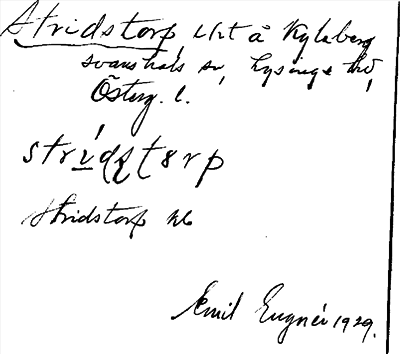 Stridstorp, lht å Kylaberg
Svanshals sn, Lysings hd,
Österg. l.
strídstərp
Stridstorp kb
Emil Eugnér 1929.